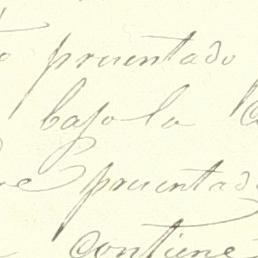 presentado
bajo la
presentado
contiene